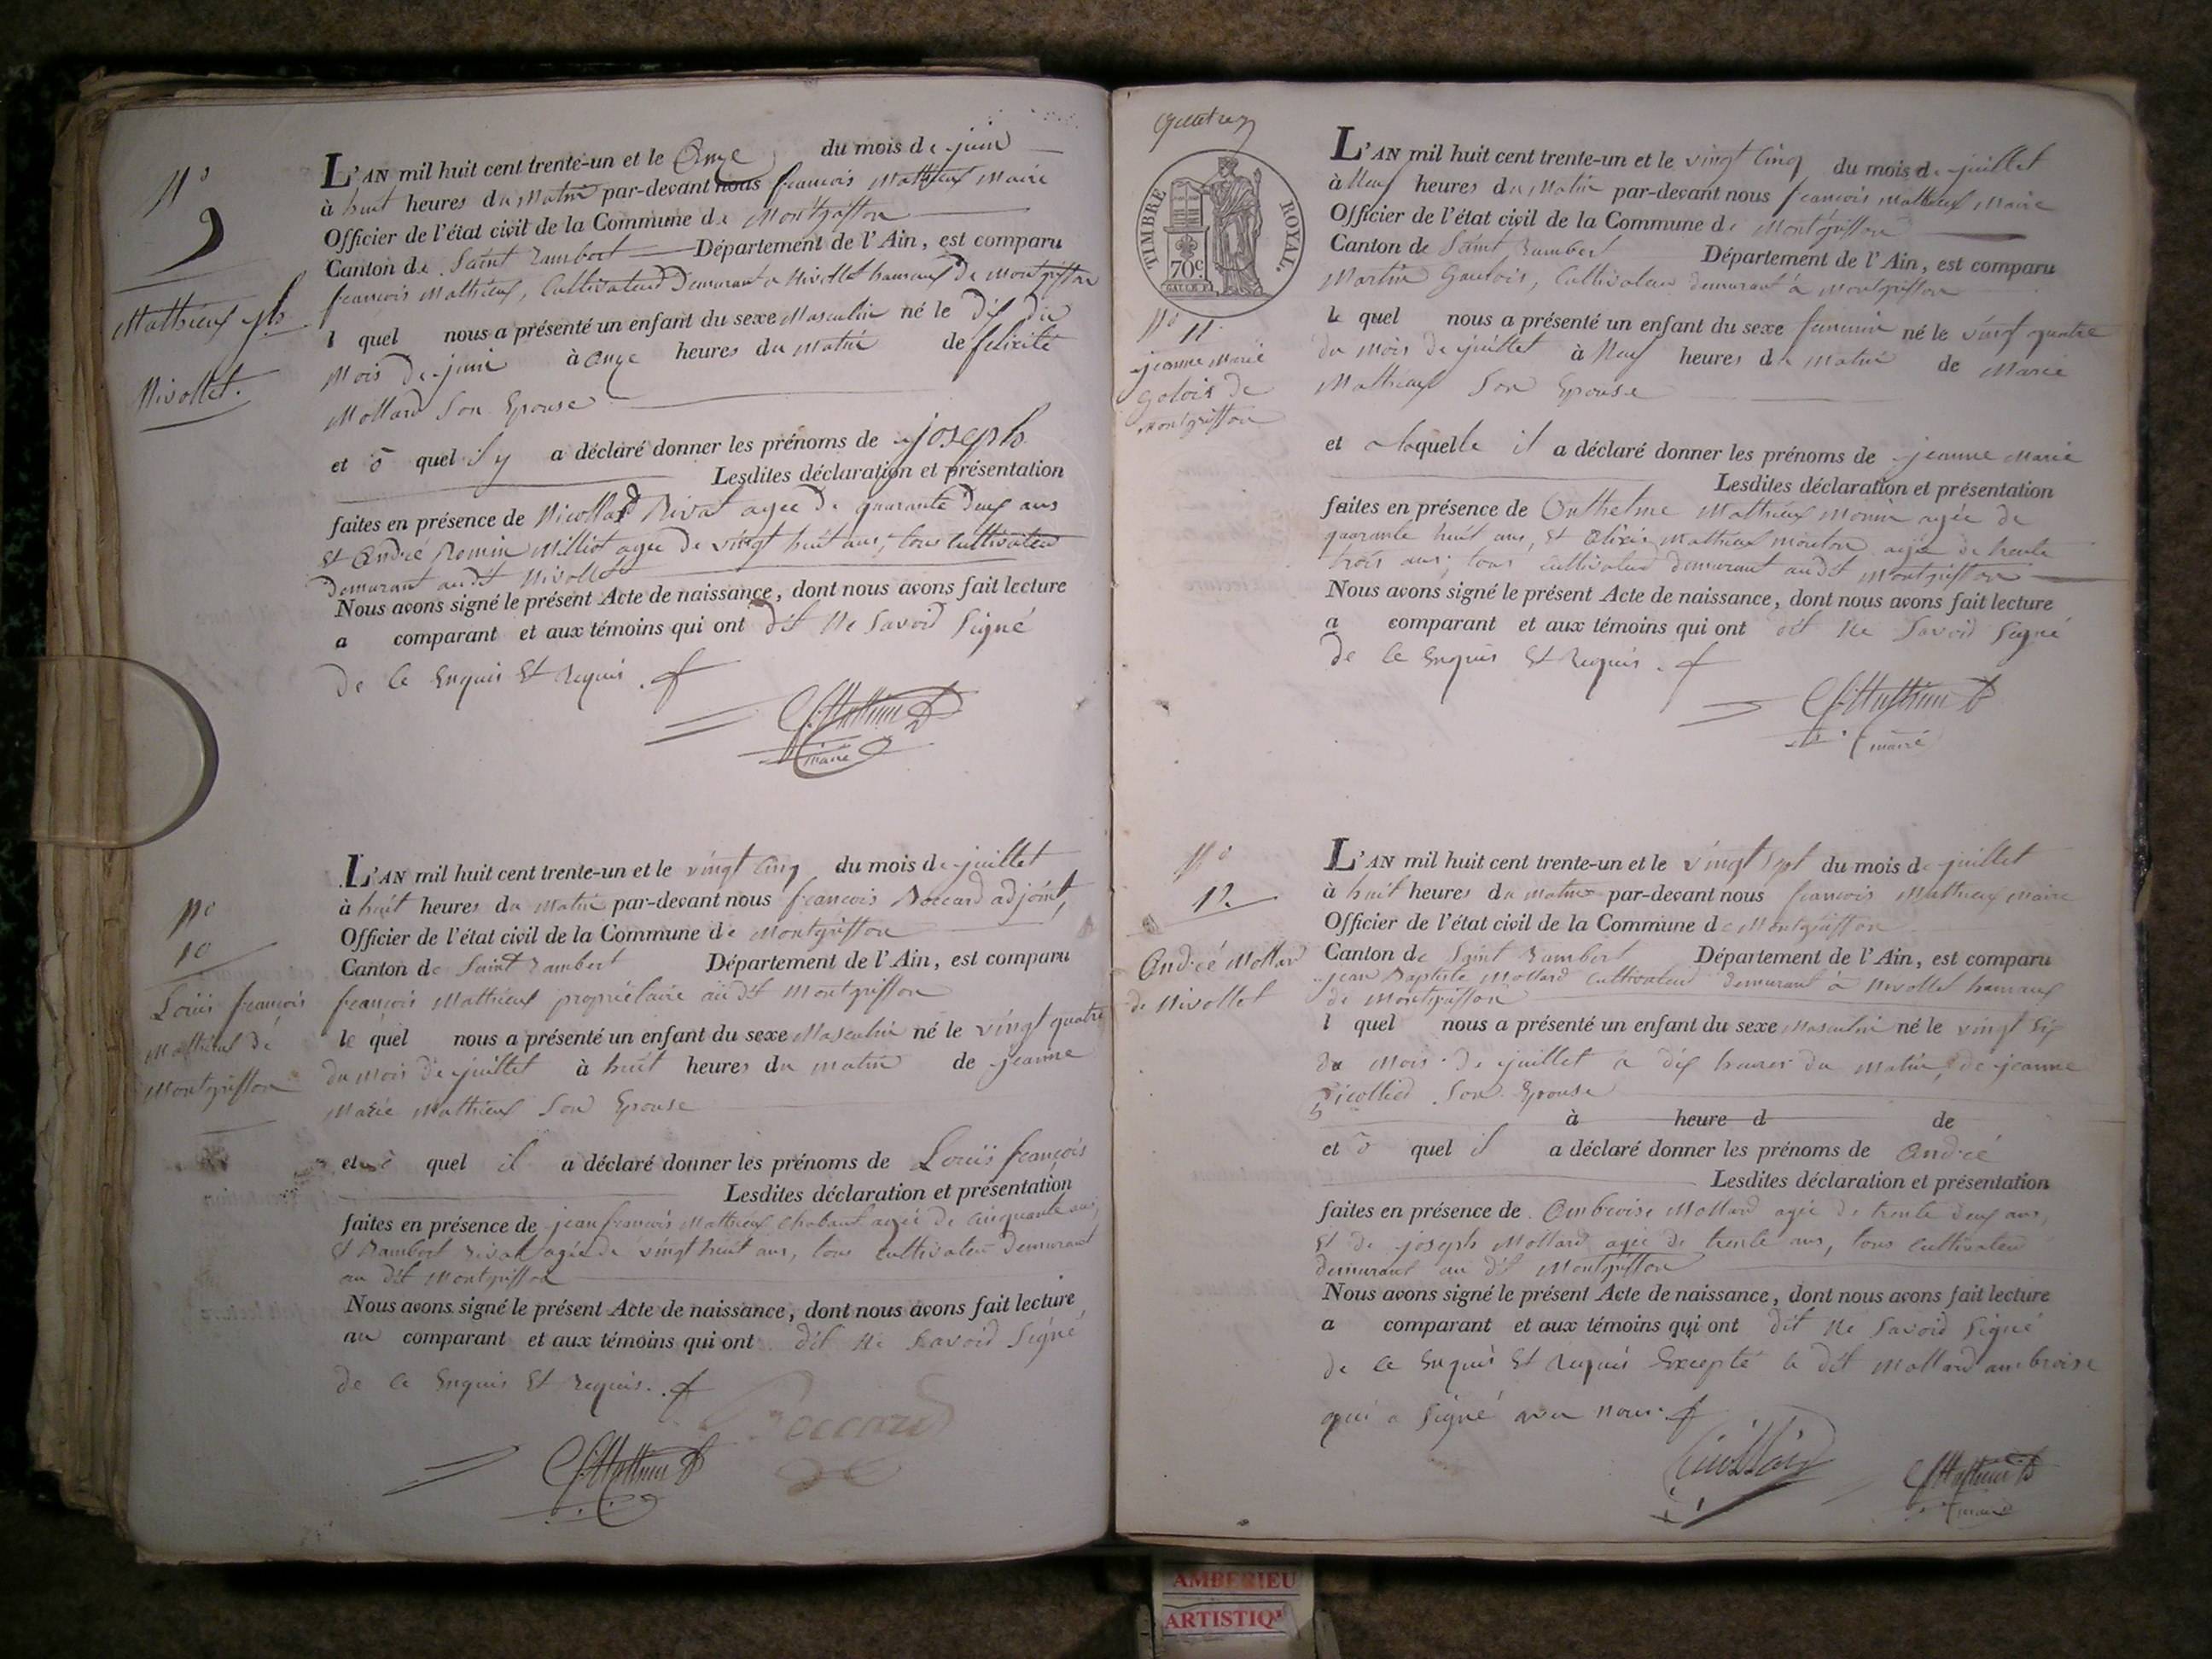 N°
9
Mathieux jph
Nivollet.
L'AN mil huit cent trente-un et le Onze du mois de juin
à huit heures du Matin par-devant nous françois Mathieux Maire
Officier de l'état civil de la Commune de Montgriffon
Canton de Saint Rambert Département de l'Ain, est comparu
françois Mathieux, Cultivateur Demurant a Nivollet hameaux De Montgriffon
l quel nous a présenté un enfant du sexe Masculin né le dix du
Mois De juin à onze heures du matin de felixité
Mollard Son Epouse
et ō quel il y a déclaré donner les prénoms de joseph
Lesdites déclaration et présentation
faites en présence de Nicollas Rivat agée De quarante Deux ans
Et André Romin Milliot agée De vingt huit ans, tous Cultivateur
Demurant audit Nivollet
Nous avons signé le présent Acte de naissance, dont nous avons fait lecture
a comparant et aux témoins qui ont dit Ne Savoir Signé
De Ce Enquis Et Requis.
f. Mathieux
maire
N°
10
Louis françois
Mathieux de
Montgriffon
L'AN mil huit cent trente-un et le vingt cinq du mois de juillet
à huit heures du matin par-devant nous françois Boccard adjoint,
Officier de l'état civil de la Commune de Montgriffon
Canton de Saint Rambert Département de l'Ain, est comparu
françois Mathieux propriétaire au dit Montgriffon
le quel nous a présenté un enfant du sexe Masculin né le vingt quatre
du mois de juillet à huit heures du matin de jeanne
Marie Mathieux Son Epouse
et quel il a déclaré donner les prénoms de Louis françois
Lesdites déclaration et présentation
faites en présence de jean françois Mathieux Chabaut agée de Cinquante ans,
Et Rambert Rivat agée de vingt huit ans, tous Cultivateur Demurant
au dit Montgriffon
Nous avons signé le présent Acte de naissance, dont nous avons fait lecture
au comparant et aux témoins qui ont dit Ne Savoir Signé
de Ce Enquis Et Requis.
Boccard
f. Mathieux
TIMBRE ROYAL.
70c.
N° 11.
jeanne Marie
Golois de
Montgriffon
L'AN mil huit cent trente-un et le vingt Cinq du mois de juillet
à Neuf heures du Matin par-devant nous françois Mathieux Maire
Officier de l'état civil de la Commune de Montgriffon
Canton de Saint Rambert Département de l'Ain, est comparu
Martin Gaulois, Cultivateur demurant à Montgriffon
le quel nous a présenté un enfant du sexe feminin né le vingt quatre
du Mois De juillet à Neuf heures du matin de Marie
Mathieux Son Epouse
et a laquelle il a déclaré donner les prénoms de jeanne Marie
Lesdites déclaration et présentation
faites en présence de Onthelme Mathieux Monin agée de
quarante huit ans, Et Alixis Mathieux Mouton agée de trente
trois ans; tous Cultivateur demurant audit Montgriffon
Nous avons signé le présent Acte de naissance, dont nous avons fait lecture
a comparant et aux témoins qui ont dit Ne Savoir Signé
De Ce Enquis Et Requis.
f. Mathieux
maire
N°
12
André Mollard
de Nivollet
L'AN mil huit cent trente-un et le vingt Sept du mois de juillet
à huit heures du matin par-devant nous françois Mathieux Maire
Officier de l'état civil de la Commune de Montgriffon
Canton de Saint Rambert Département de l'Ain, est comparu
jean Baptiste Mollard Cultivateur Demurant à Nivollet hameaux
de Montgriffon
l quel nous a présenté un enfant du sexe Masculin né le vingt Six
du Mois De juillet a dix heures du Matin, de jeanne
Son Epouse
à heure d de
et ō quel il a déclaré donner les prénoms de André
Lesdites déclaration et présentation
faites en présence de Ombroise Mollard agée de trente Deux ans,
Et de joseph Mollard agée de trente ans, tous Cultivateur
demurant au dit Montgriffon
Nous avons signé le présent Acte de naissance, dont nous avons fait lecture
a comparant et aux témoins qui ont dit Ne Savoir Signé
de Ce Enquis Et Requis Excepté le dit Mollard ambroise
qui a Signé avec Nous.
f. Mathieux
maire
AMBERIEU
ARTISTIQ